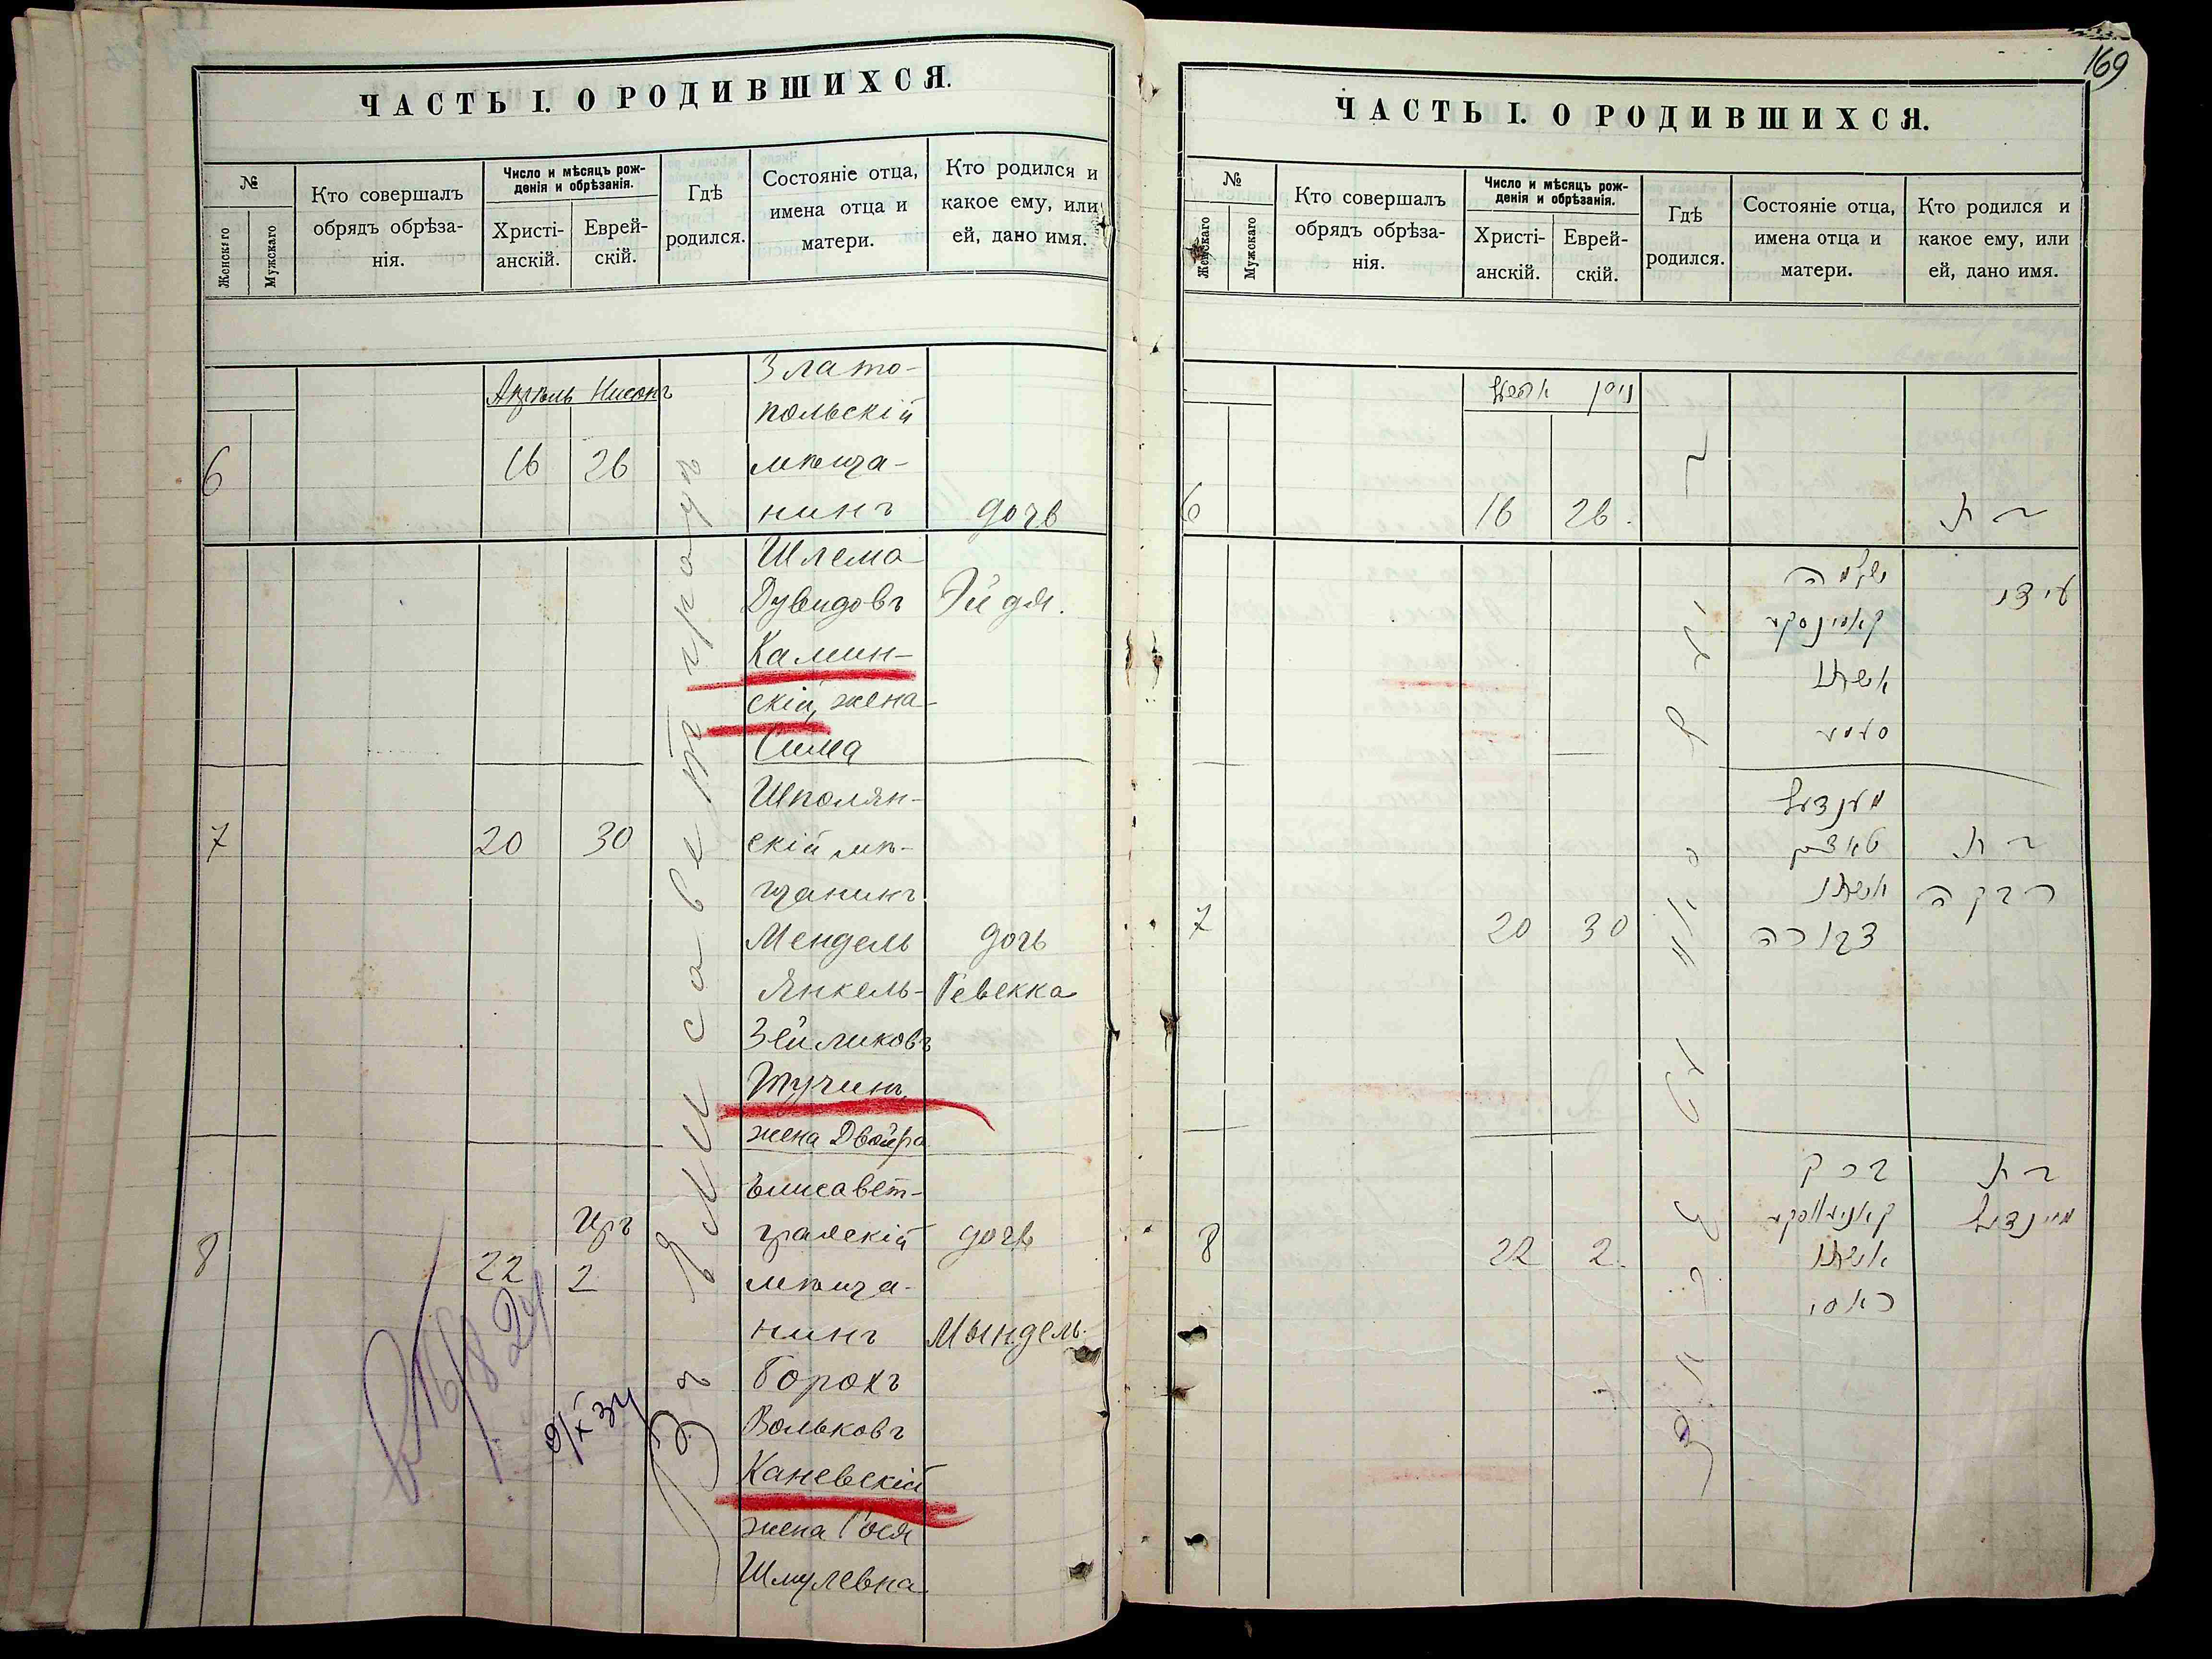 ЧАСТЬ I. О РОДИВШИХСЯ.
№
Женскаго
Мужскаго
Кто совершалъ
обрядъ обрѣза-
нія.
Число и мѣсяцъ рож-
денія и обрѣзанія.
Христі-
анскій.
Еврей-
скій.
Гдѣ
родился.
Состояніе отца,
имена отца и
матери.
Кто родился и
какое ему, или
ей, дано имя.
Апрѣль Нисонъ
6
16
26
Злато-
польскій
мѣща-
нинъ
Шлема
Дувидовъ
Камин-
скій, жена
Сима
дочь
Эйдя.
Въ Елисаветградѣ
7
20
30
Шполян-
скій мѣ-
щанинъ
Мендель
Янкель-
Зейликовъ
Тучинъ,
жена Двойра
дочь
Ревекка
8
22
Иръ
2
Елисавет-
градскій
мѣща-
нинъ
Борохъ
Вольковъ
Каневскій
жена Рося
Шмулевна
дочь
Мындель
16/8 24
9/X 34
169
ЧАСТЬ I. О РОДИВШИХСЯ.
№
Женскаго
Мужскаго
Кто совершалъ
обрядъ обрѣза-
нія.
Число и мѣсяцъ рож-
денія и обрѣзанія.
Христі-
анскій.
Еврей-
скій.
Гдѣ
родился.
Состояніе отца,
имена отца и
матери.
Кто родился и
какое ему, или
ей, дано имя.
ניסן
6
16
26
שלמה
קאמינסקי
אשתו
סימי
בת
איידי
7
20
30
מענדעל
אשתו
דבורה
בת
רבקה
8
22
2
ברק
קאניעווסקי
אשתו
ראסי
בת
מיינדיל